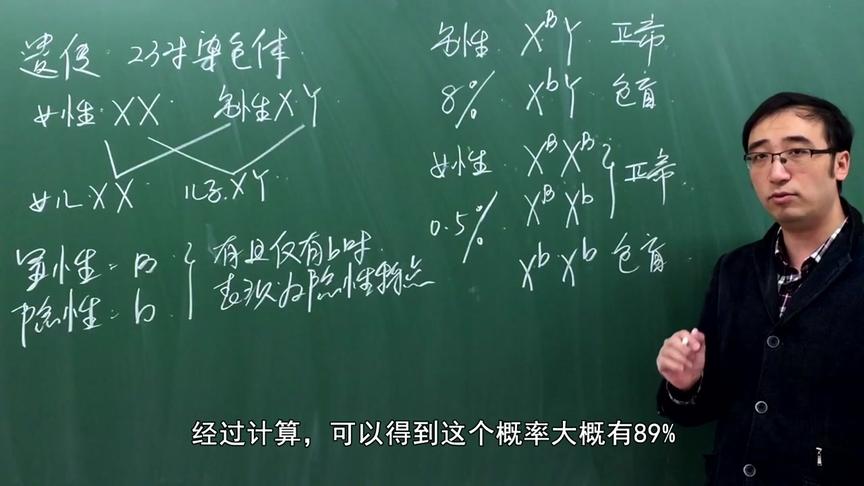 遗传 23对染色体
女性:XX 男性XY
女儿:XX 儿子:XY
显性:B
隐性:b
有且仅有b时
表现为隐性特点
男性 X^B Y 正常
8% X^b Y 色盲
女性 X^B X^B
0.5% X^B X^b
正常
X^b X^b 色盲
经过计算，可以得到这个概率大概有89%